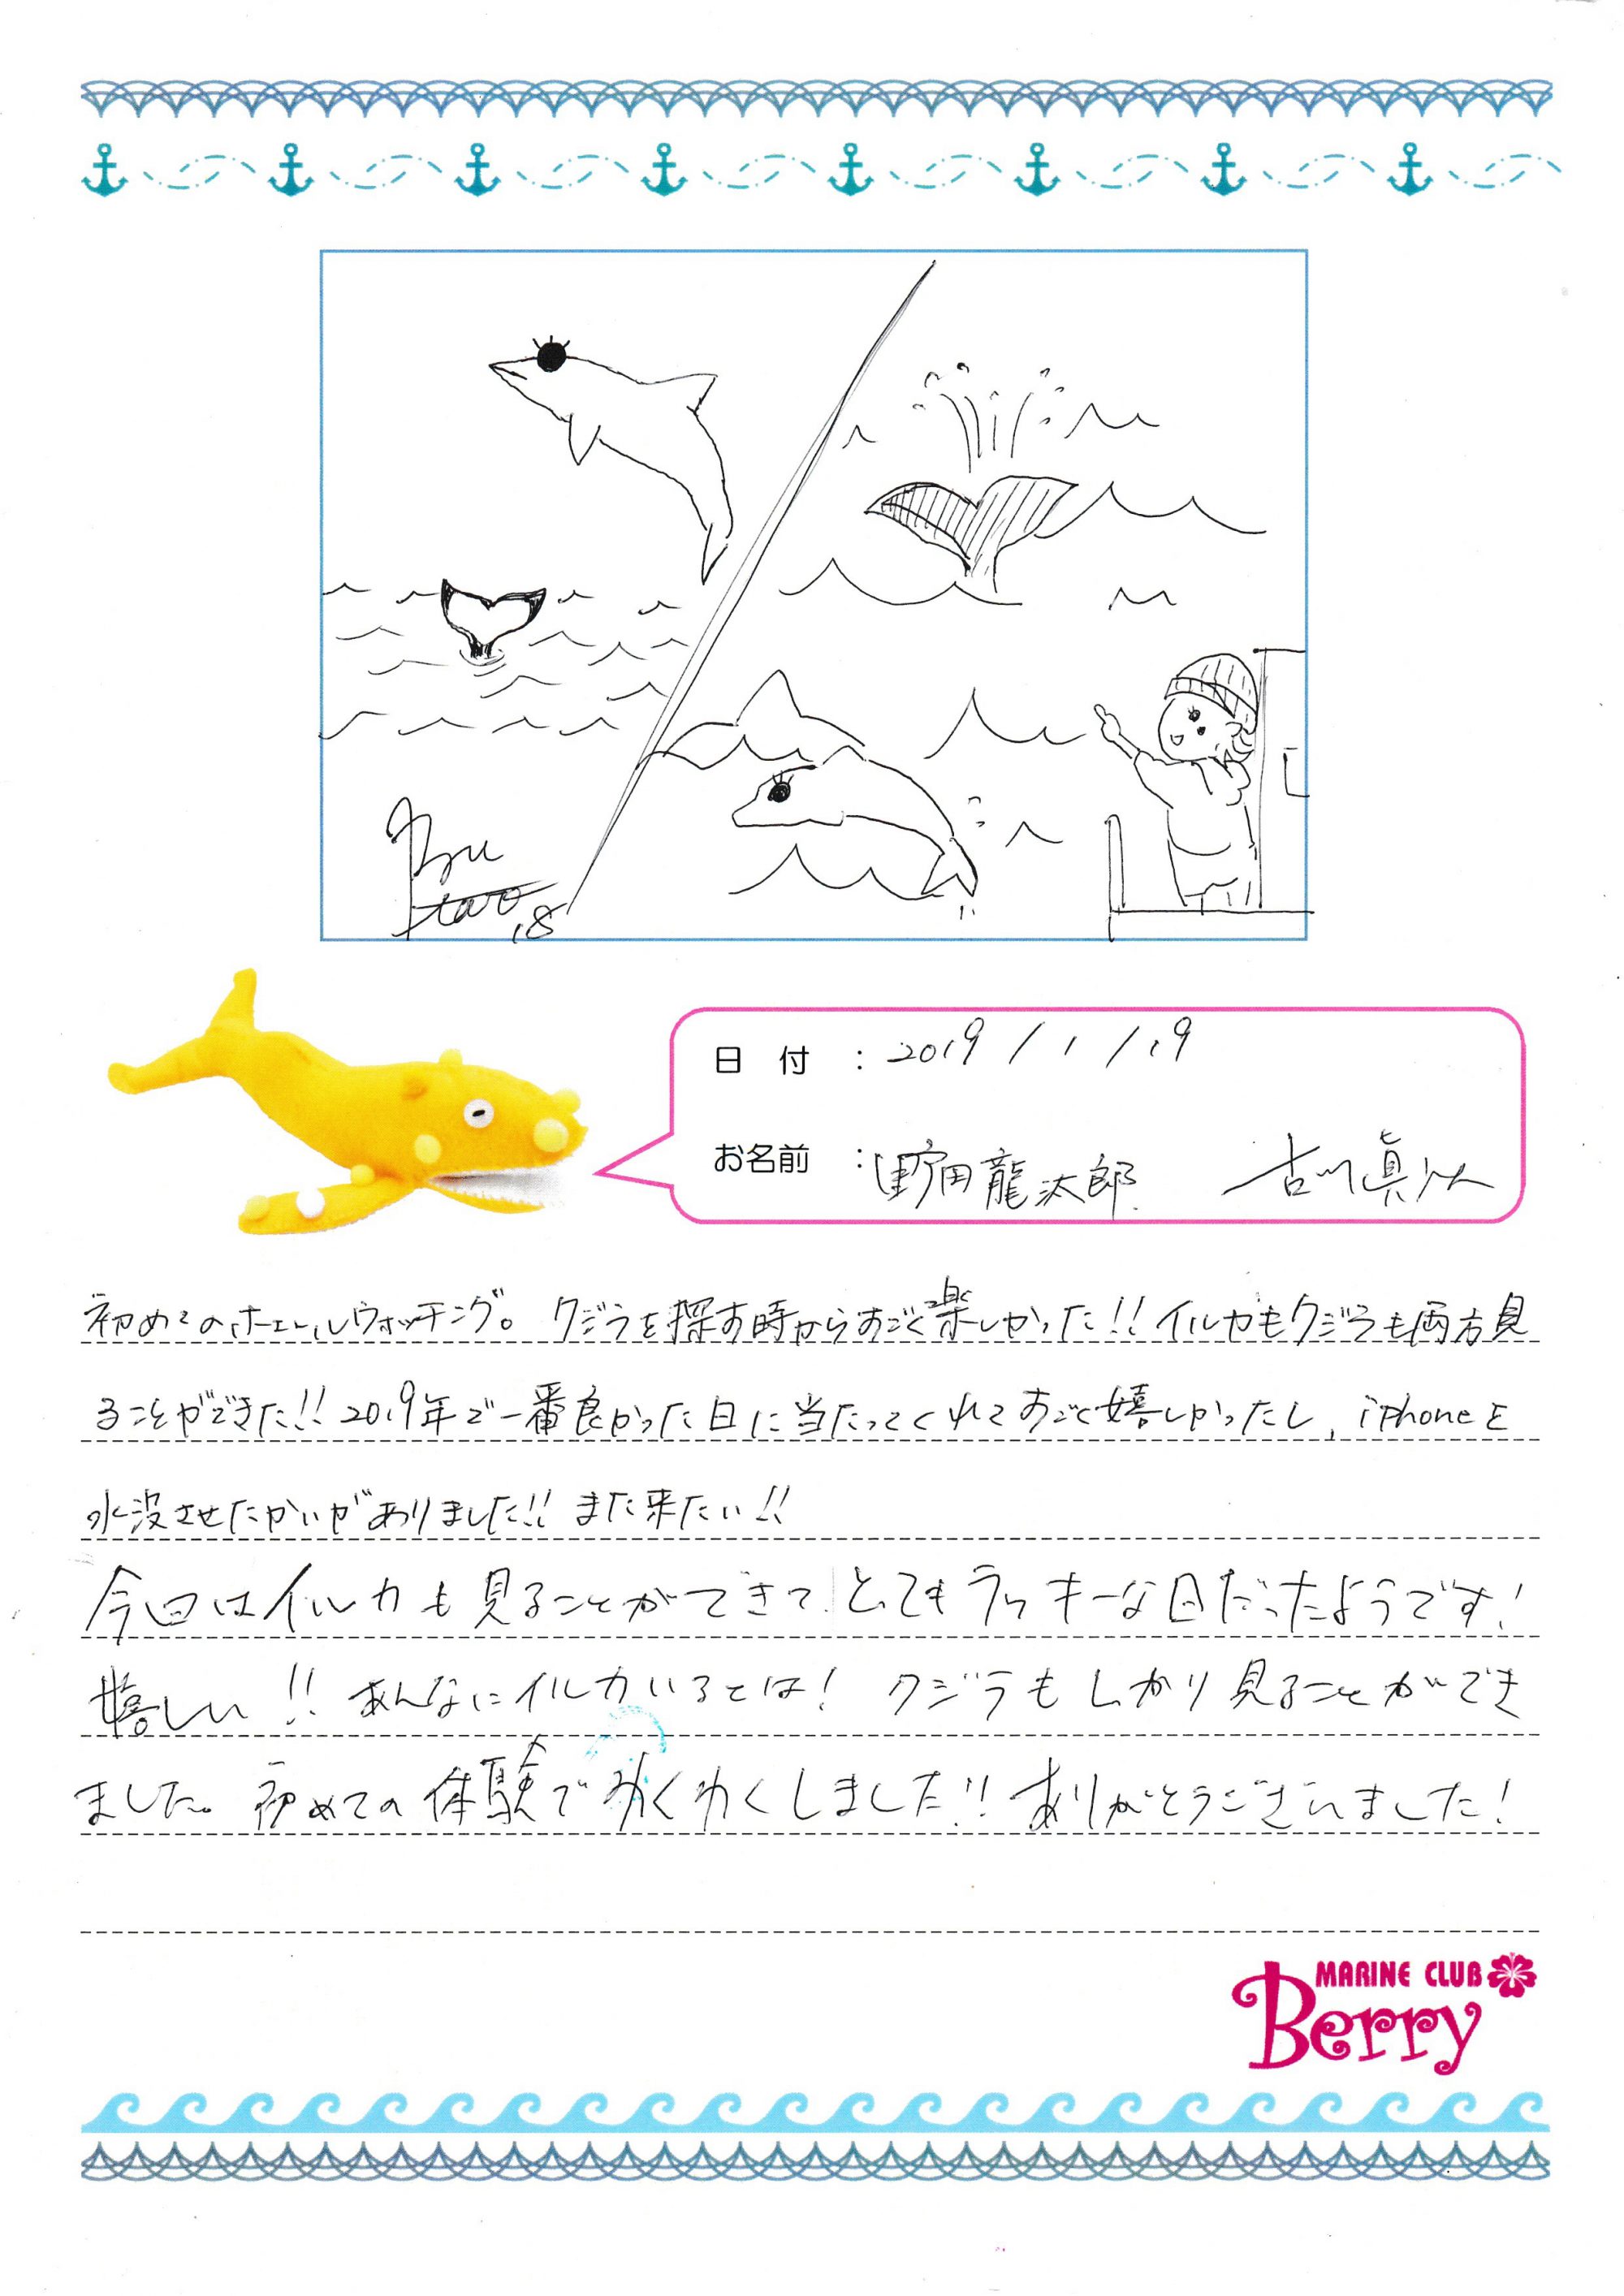 日付：2019/1/19
お名前：野田龍太郎 古川真
初めてのホエールウォッチング。クジラを探す時からすごく楽しかった!!イルカもクジラも両方見
ることができた!!2019年で一番良かった日に当たってくれてすごく嬉しかったし、iPhoneを
水没させたかいがありました!!また来たい!!
今回はイルカも見ることができて、とてもラッキーな日だったようです!
嬉しい!!あんなにイルカいるとは!クジラもしっかり見ることができ
ました。初めての体験でわくわくしました!!ありがとうございました!
MARINE CLUB
Berry